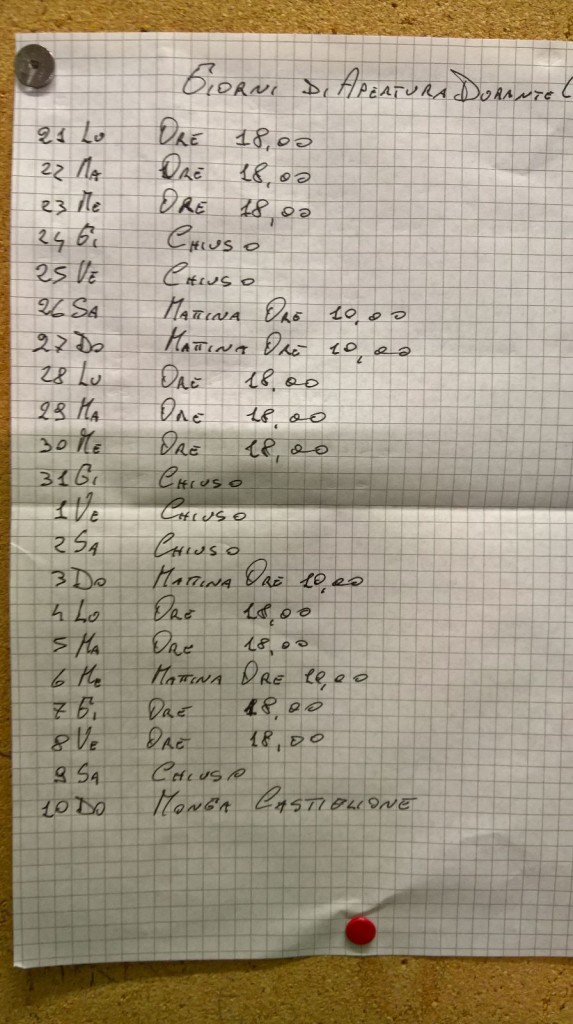 GIORNI DI APERTURA DURANTE
21 LU ORE 18,00
22 MA ORE 18,00
23 ME ORE 18,00
24 GI CHIUSO
25 VE CHIUSO
26 SA MATTINA ORE 10,00
27 DO MATTINA ORE 10,00
28 LU ORE 18,00
29 MA ORE 18,00
30 ME ORE 18,00
31 GI CHIUSO
1 VE CHIUSO
2 SA CHIUSO
3 DO MATTINA ORE 10,00
4 LU ORE 18,00
5 MA ORE 18,00
6 ME MATTINA ORE 10,00
7 GI ORE 18,00
8 VE ORE 18,00
9 SA CHIUSO
10 DO MONGA CASTIGLIONE